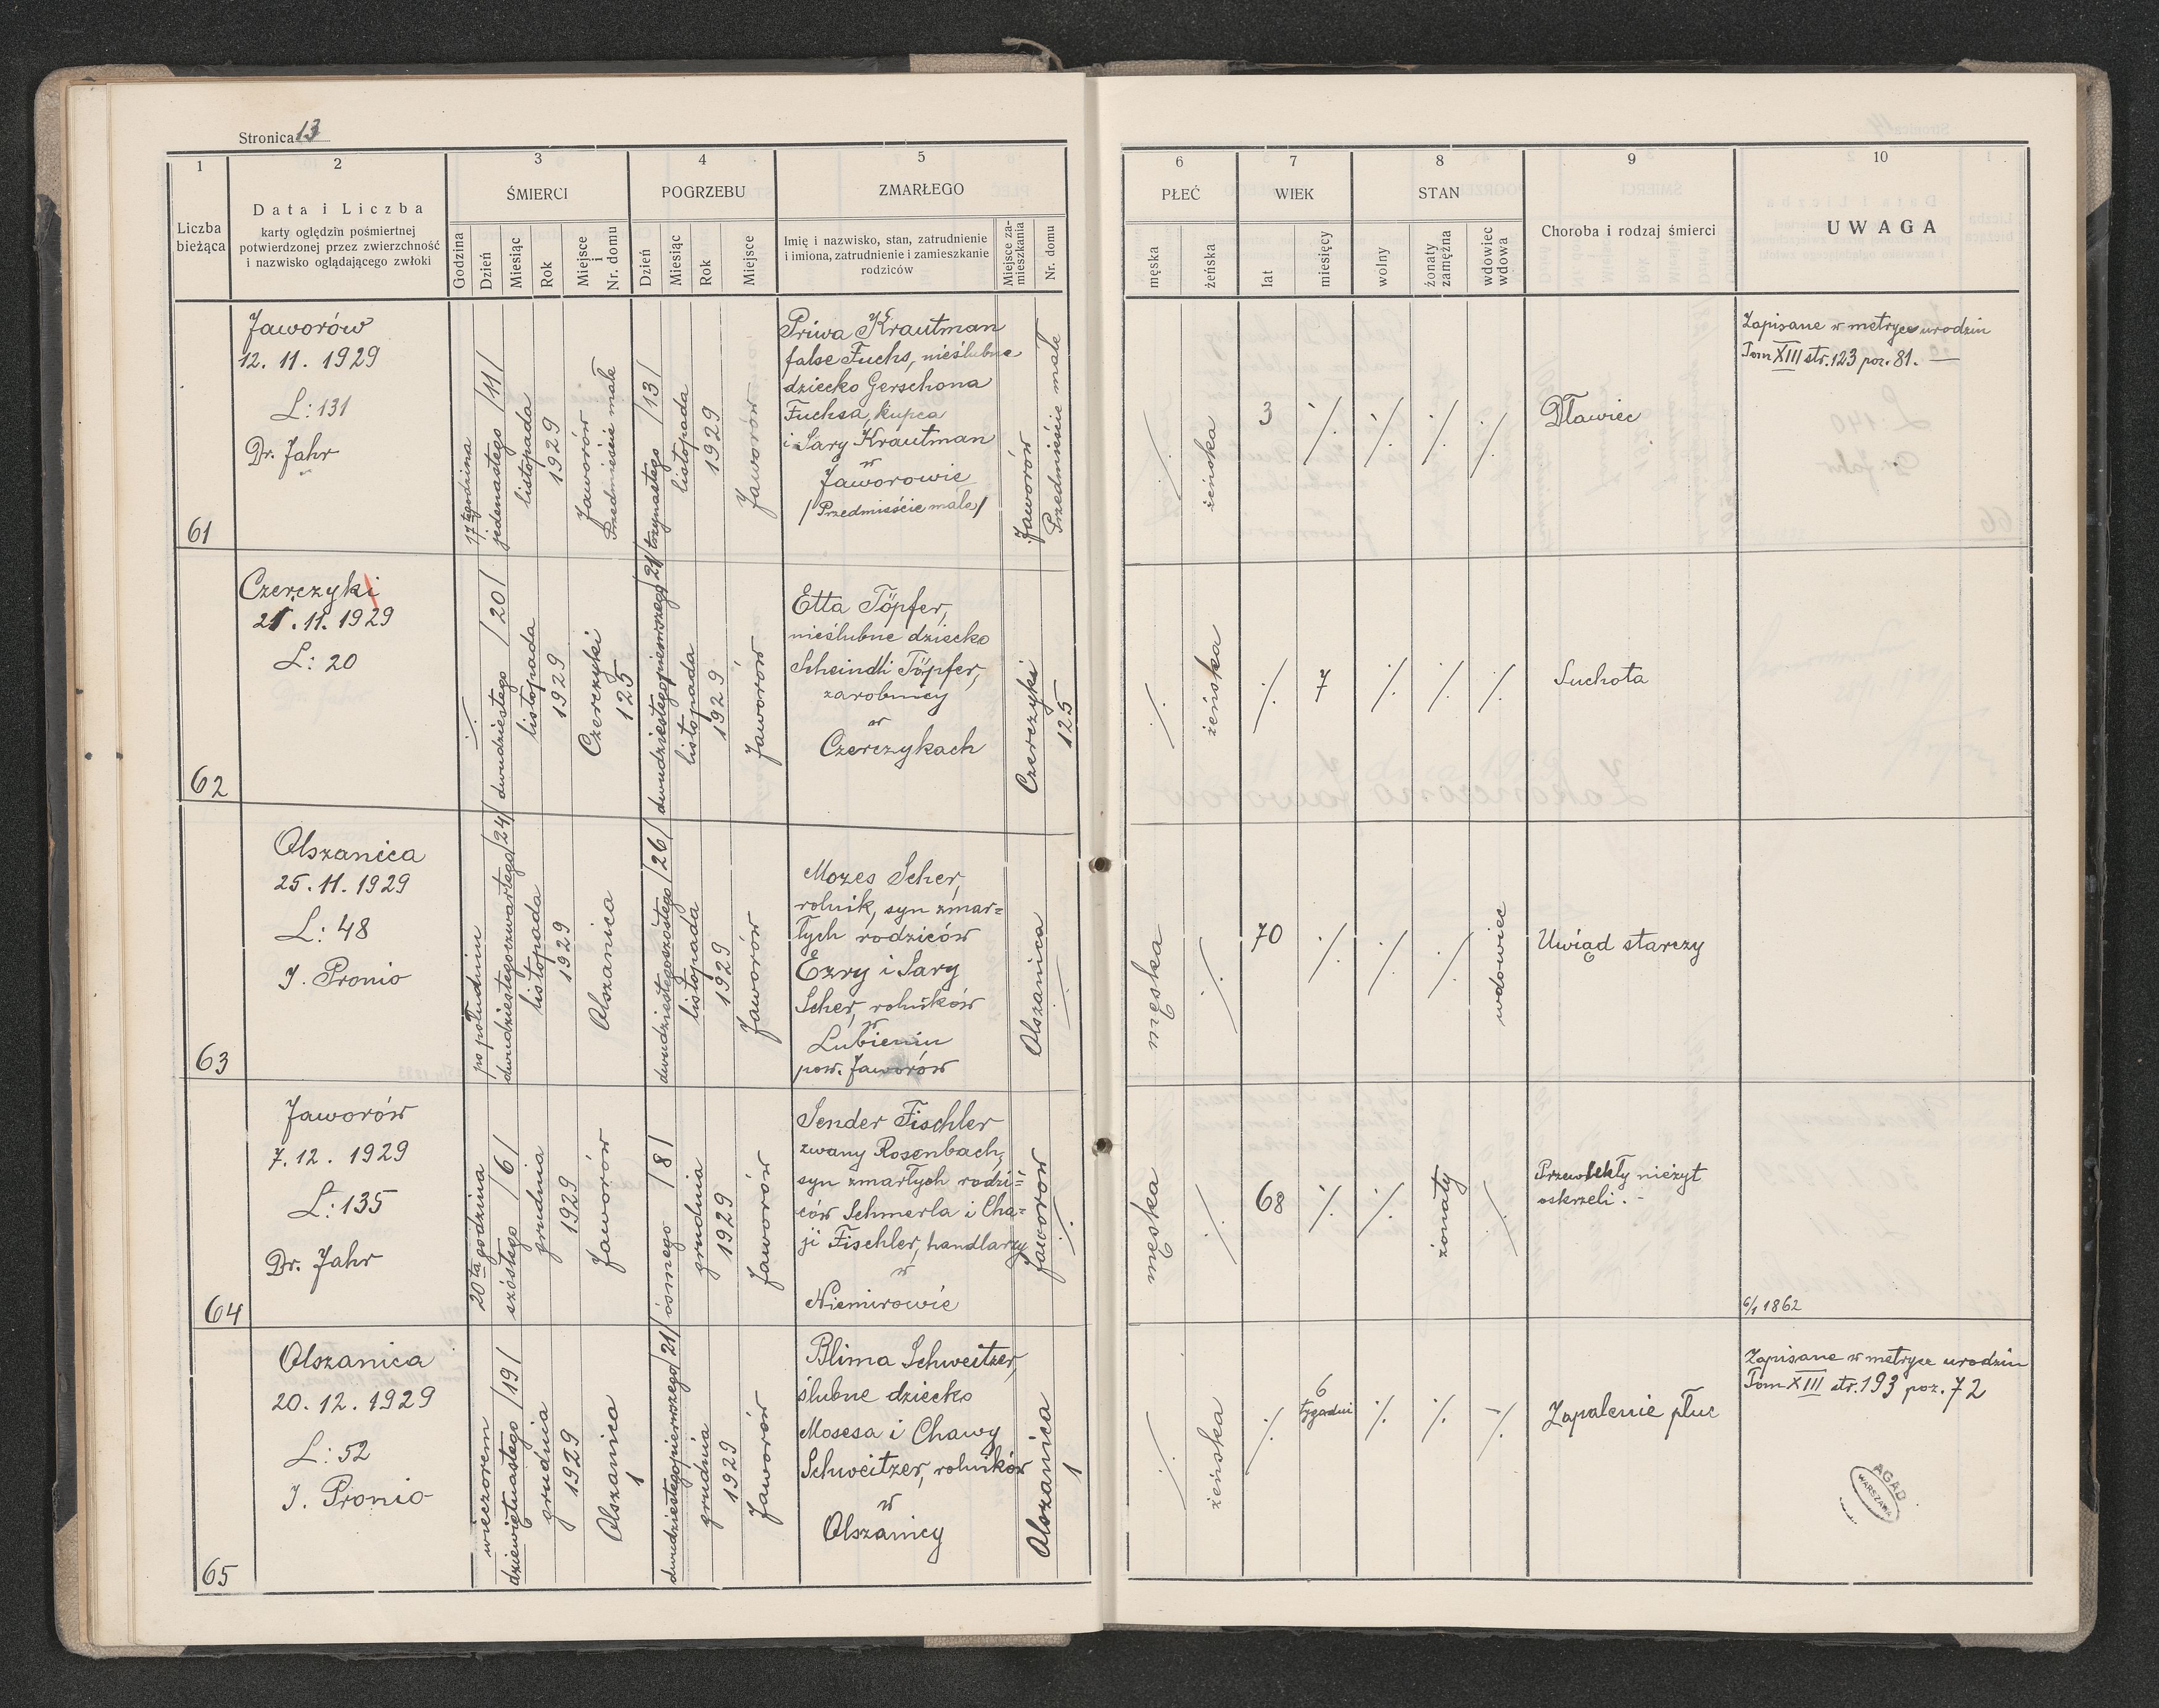 Stronica 13
1
2
3
4
5
6
7
8
9
10
Liczba
bieżąca
Data i Liczba
karty oględzin pośmiertnej
potwierdzonej przez zwierzchność
i nazwisko oglądającego zwłoki
ŚMIERCI
Godzina
Dzień
Miesiąc
Rok
Miejsce
i
Nr. domu
POGRZEBU
Dzień
Miesiąc
Rok
Miejsce
ZMARŁEGO
Imię i nazwisko, stan, zatrudnienie
i imiona, zatrudnienie i zamieszkanie
rodziców
Miejsce za-
mieszkania
Nr. domu
PŁEĆ
męska
żeńska
WIEK
lat
miesięcy
STAN
wolny
żonaty
zamężna
wdowiec
wdowa
Choroba i rodzaj śmierci
UWAGA
61
Jaworów
12. 11. 1929
L: 131
Dr. Jahr
17ta godzina
jedenastego /11/
listopada
1929
Jaworów
Przedmieście małe
trzynastego /13/
listopada
1929
Jaworów
Priwa Krautman
false Fuchs, nieślubne
dziecko Gerschona
Fuchsa, kupca
i Sary Krautman
w
Jaworowie
/Przedmieście małe/
Jaworów
Przedmieście małe
./.
żeńska
3
./.
./.
./.
./.
Dławiec
Zapisane w metryce urodzin
Tom XIII str. 123 poz. 81. —
62
Czerczyki
21. 11. 1929
L: 20
./.
dwudziestego /20/
listopada
1929
Czerczyki
125
dwudziestegopierwszego /21/
listopada
1929
Jaworów
Etta Töpfer,
nieślubne dziecko
Scheindli Töpfer,
zarobnicy
w
Czerczykach
Czerczyki
125
./.
żeńska
./.
7
./.
./.
./.
Suchota
63
Olszanica
25. 11. 1929
L: 48
J. Pronio
po południu
dwudziestegoczwartego /24/
listopada
1929
Olszanica
dwudziestegoszóstego /26/
listopada
1929
Jaworów
Mozes Scher,
rolnik, syn zmar=
łych rodziców
Ezry i Sary
Scher, rolników
w
Lubieniu
pow. Jaworów
Olszanica
./.
męska
./.
70
./.
./.
./.
wdowiec
Uwiąd starczy
64
Jaworów
7. 12. 1929
L: 135
Dr. Jahr
20ta godzina
szóstego /6/
grudnia
1929
Jaworów
ósmego /8/
grudnia
1929
Jaworów
Sender Fischler
zwany Rosenbach,
syn zmarłych rodzi=
ców Schmerla i Cha=
ji Fischler, handlarzy
w
Niemirowie
Jaworów
./.
męska
./.
68
./.
./.
żonaty
./.
Przewlekły nieżyt
oskrzeli. -
6/1 1862
65
Olszanica
20. 12. 1929
L: 52
J. Pronio
wieczorem
dziewiętnastego /19/
grudnia
1929
Olszanica
1
dwudziestegopierwszego /21/
grudnia
1929
Jaworów
Blima Schweitzer,
ślubne dziecko
Mosesa i Chawy
Schweitzer, rolników
w
Olszanicy
Olszanica
1
./.
żeńska
./.
6
tygodni
./.
./.
./.
Zapalenie płuc
Zapisane w metryce urodzin
Tom XIII str. 193 poz. 72
AGAD
WARSZAWA